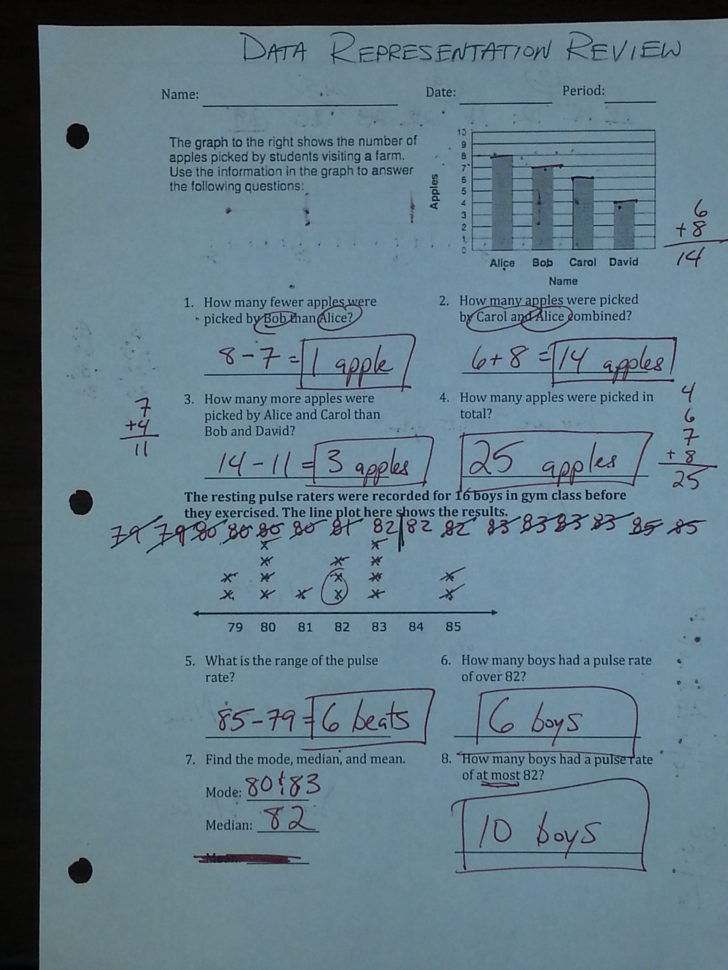 DATA REPRESENTATION REVIEW
Name: Date: Period:
The graph to the right shows the number of
apples picked by students visiting a farm.
Use the information in the graph to answer
the following questions:
Apples
10
9
8
7
6
5
4
3
2
1
0
Alice Bob Carol David
Name
6
+ 8
14
1. How many fewer apples were
picked by Bob than Alice?
8 - 7 = 1 apple
2. How many apples were picked
by Carol and Alice combined?
6 + 8 = 14 apples
7
+4
11
3. How many more apples were
picked by Alice and Carol than
Bob and David?
14 - 11 = 3 apples
4. How many apples were picked in
total?
25 apples
4
6
7
+ 8
25
The resting pulse raters were recorded for 16 boys in gym class before
they exercised. The line plot here shows the results.
79 79 80 80 80 80 81 82 | 82 82 83 83 83 83 85 85
79 80 81 82 83 84 85
5. What is the range of the pulse
rate?
85 - 79 = 6 beats
6. How many boys had a pulse rate
of over 82?
6 boys
7. Find the mode, median, and mean.
Mode: 80 & 83
Median: 82
8. How many boys had a pulse rate
of at most 82?
10 boys